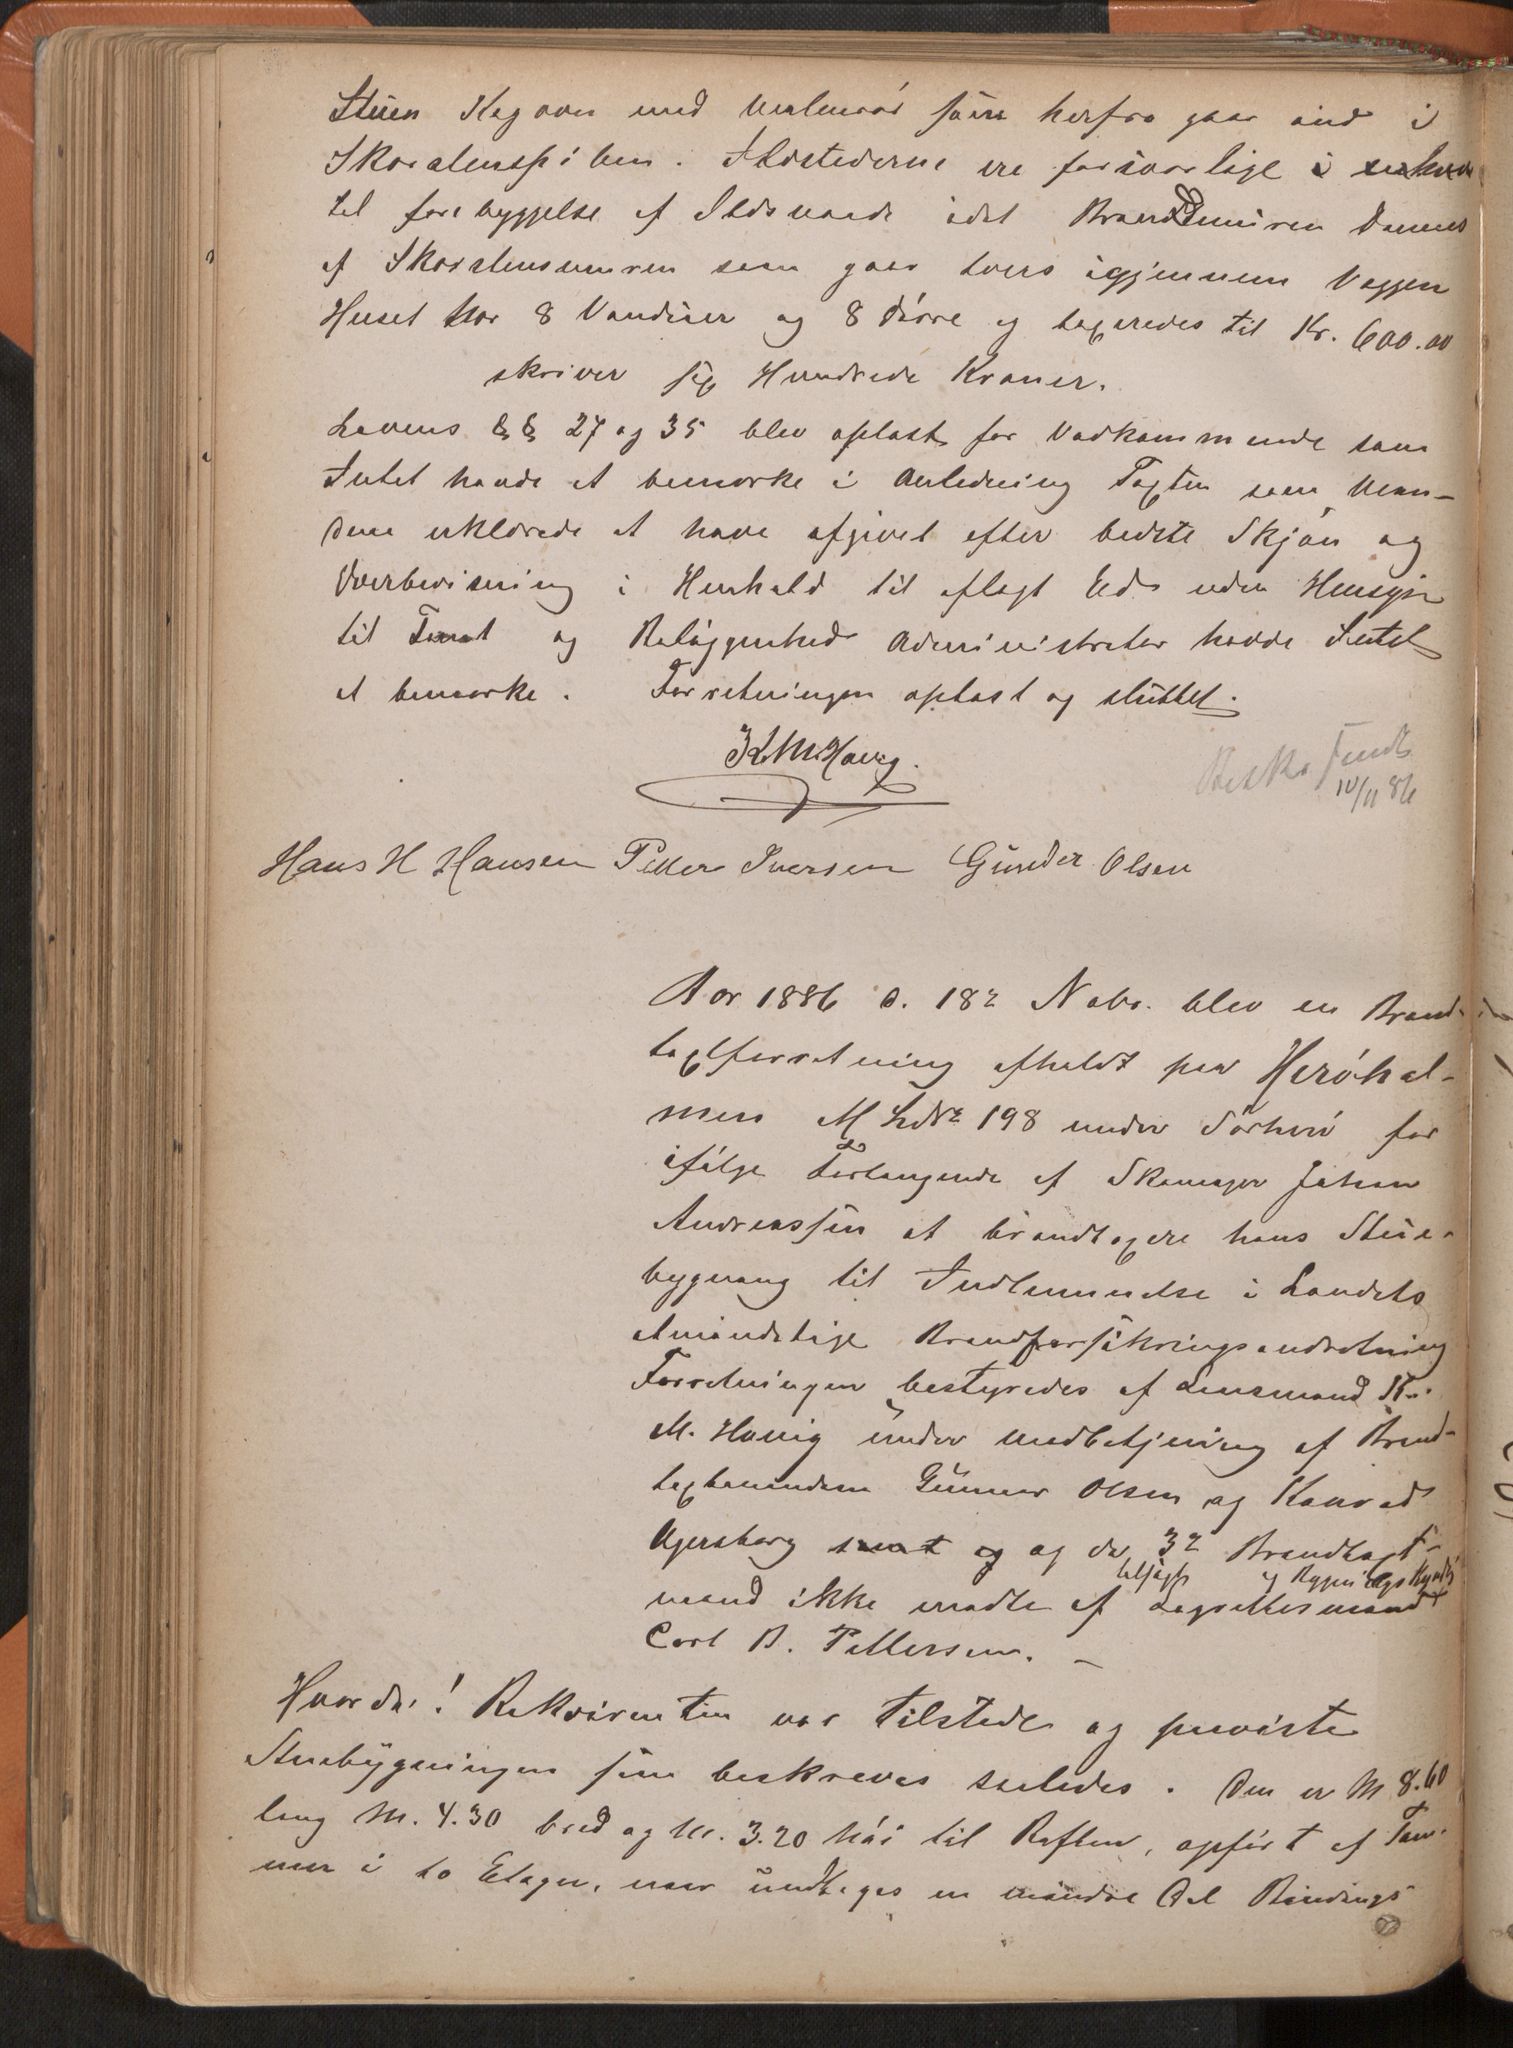 Stuen Kogoven med Mellemrør som herfra gaar ind i
Skorstenspiben. Ildstederne ere forsvarlige i enhver
til forebyggelse af Ildsvaade idet Brandmuren dannes
af Skorstensmuren som gaar tvers igjennem Væggen
Huset har 8 Vinduer og 8 Dørre og taxeredes til Kr. 600.00
skriver sex Hundrede Kroner.
Lovens §§ 27 og 35 blev oplæst for Vedkommende som
Intet havde at bemærke i Anledning Taxten som Mæn-
dene erklærede at have afgivet efter bedste Skjøn og
Overbevisning i Henhold til aflagt Ed uden Hensyn
til Tomt og Beliggenhed Administrator havde Intet
at bemærke. Forretningen oplæst og sluttet.
K. M. Havig.
Besk. sendt
10/11 86
Hans H Hansen Petter Iversen Gunder Olsen
Aar 1886 d. 18de Novbr. blev en Brand-
taxtforretning afholdt paa Herøhol-
men M Lbnr 198 under Sørherø for
ifølge Forlangende af Skomager Johan
Andreassen at brandtaxere hans Stue-
bygning til Indlemmelse i Landets
almindelige Brandforsikringsindretning
Forretningen bestyredes af Lensmand K.
M. Havig under Medbetjening af Brand-
taxtmændene Gunnar Olsen og Konrad
Agersborg samt og og da 3de Brandtaxt-
tilsagt og Bygningskyndig
mand ikke mødte af Lagrettesmand
Carl B. Pettersen. —
Hvorda! Rekvirenten var tilstede og paaviste
Stuebygningen som beskreves saaledes. Den er M 8.60
lang M. 4.30 bred og M. 3.20 høi til Raften, opført af Tøm-
mer i to Etager, naar undtages en mindre Del Bindings